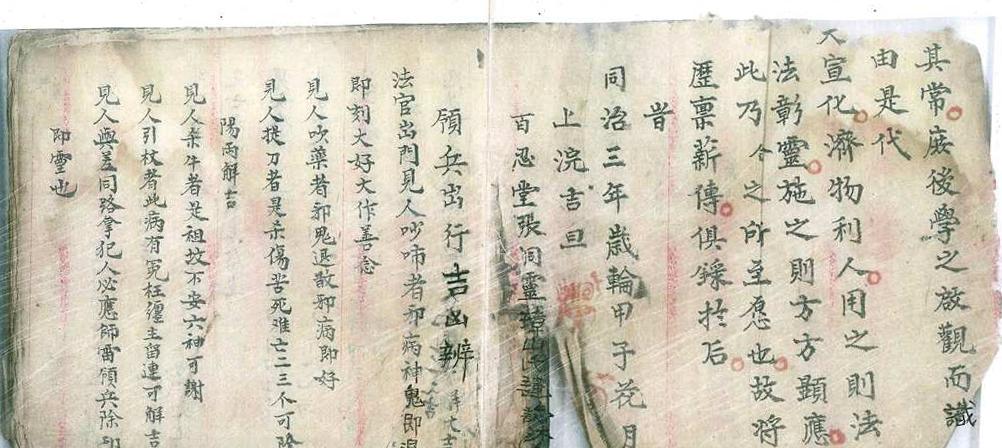 其常庶後學之啟觀而識
由是代
天宣化濟物利人用之則法
法彰靈施之則方方顯應
此乃个之所至愿也故将
歷稟薪傳俱錄扵后
昔
同治三年歲輪甲子花月
上浣吉旦
百忍堂張洞靈
領兵出行吉凶辨
法官出門見人吵啼者邪病神鬼即退
即刻大好大作善念
見人吹藥者邪鬼退散邪病即好
見人提刀者是杀傷苦死难亡二三个可除
陽雨解吉
見人牵牛者是祖坟不安六神可謝
見人引杖者此病有冤枉纏主留連可解吉
見人與差同路拿犯人必應師雷領兵除
即靈也